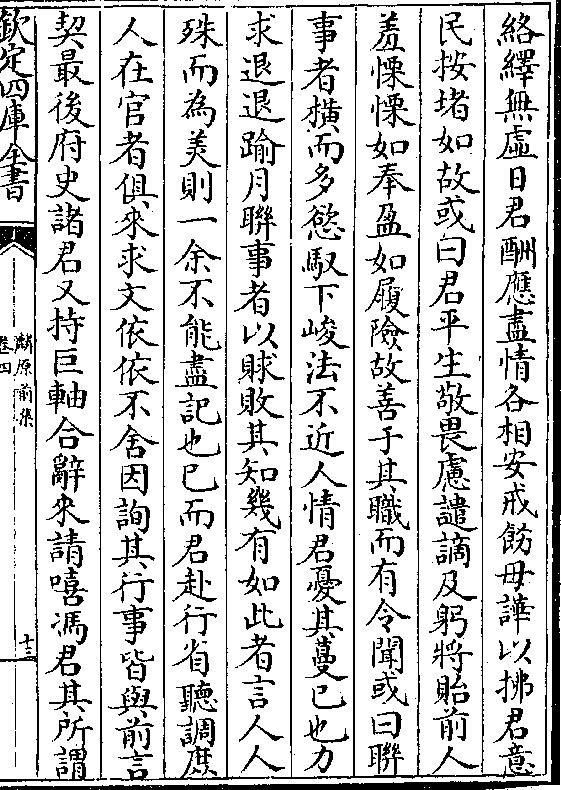 絡繹無虛日君酬應盡情各相安戒飭毋譁以拂君意
民按堵如故或曰君平生敬畏慮譴謫及躬將貽前人
羞慄慄如奉盈如履險故善于其職而有令聞或曰聯
事者橫而多慾馭下峻法不近人情君憂其蔓已也力
求退退踰月聯事者以賕敗其知幾有如此者言人人
殊而為美則一余不能盡記也已而君赴行省聽調庶
人在官者俱來求文依依不舍因詢其行事皆與前言
契最後府史諸君又持巨軸合辭來請嘻馮君其所謂
欽定四庫全書
麟原前集
卷四
十三